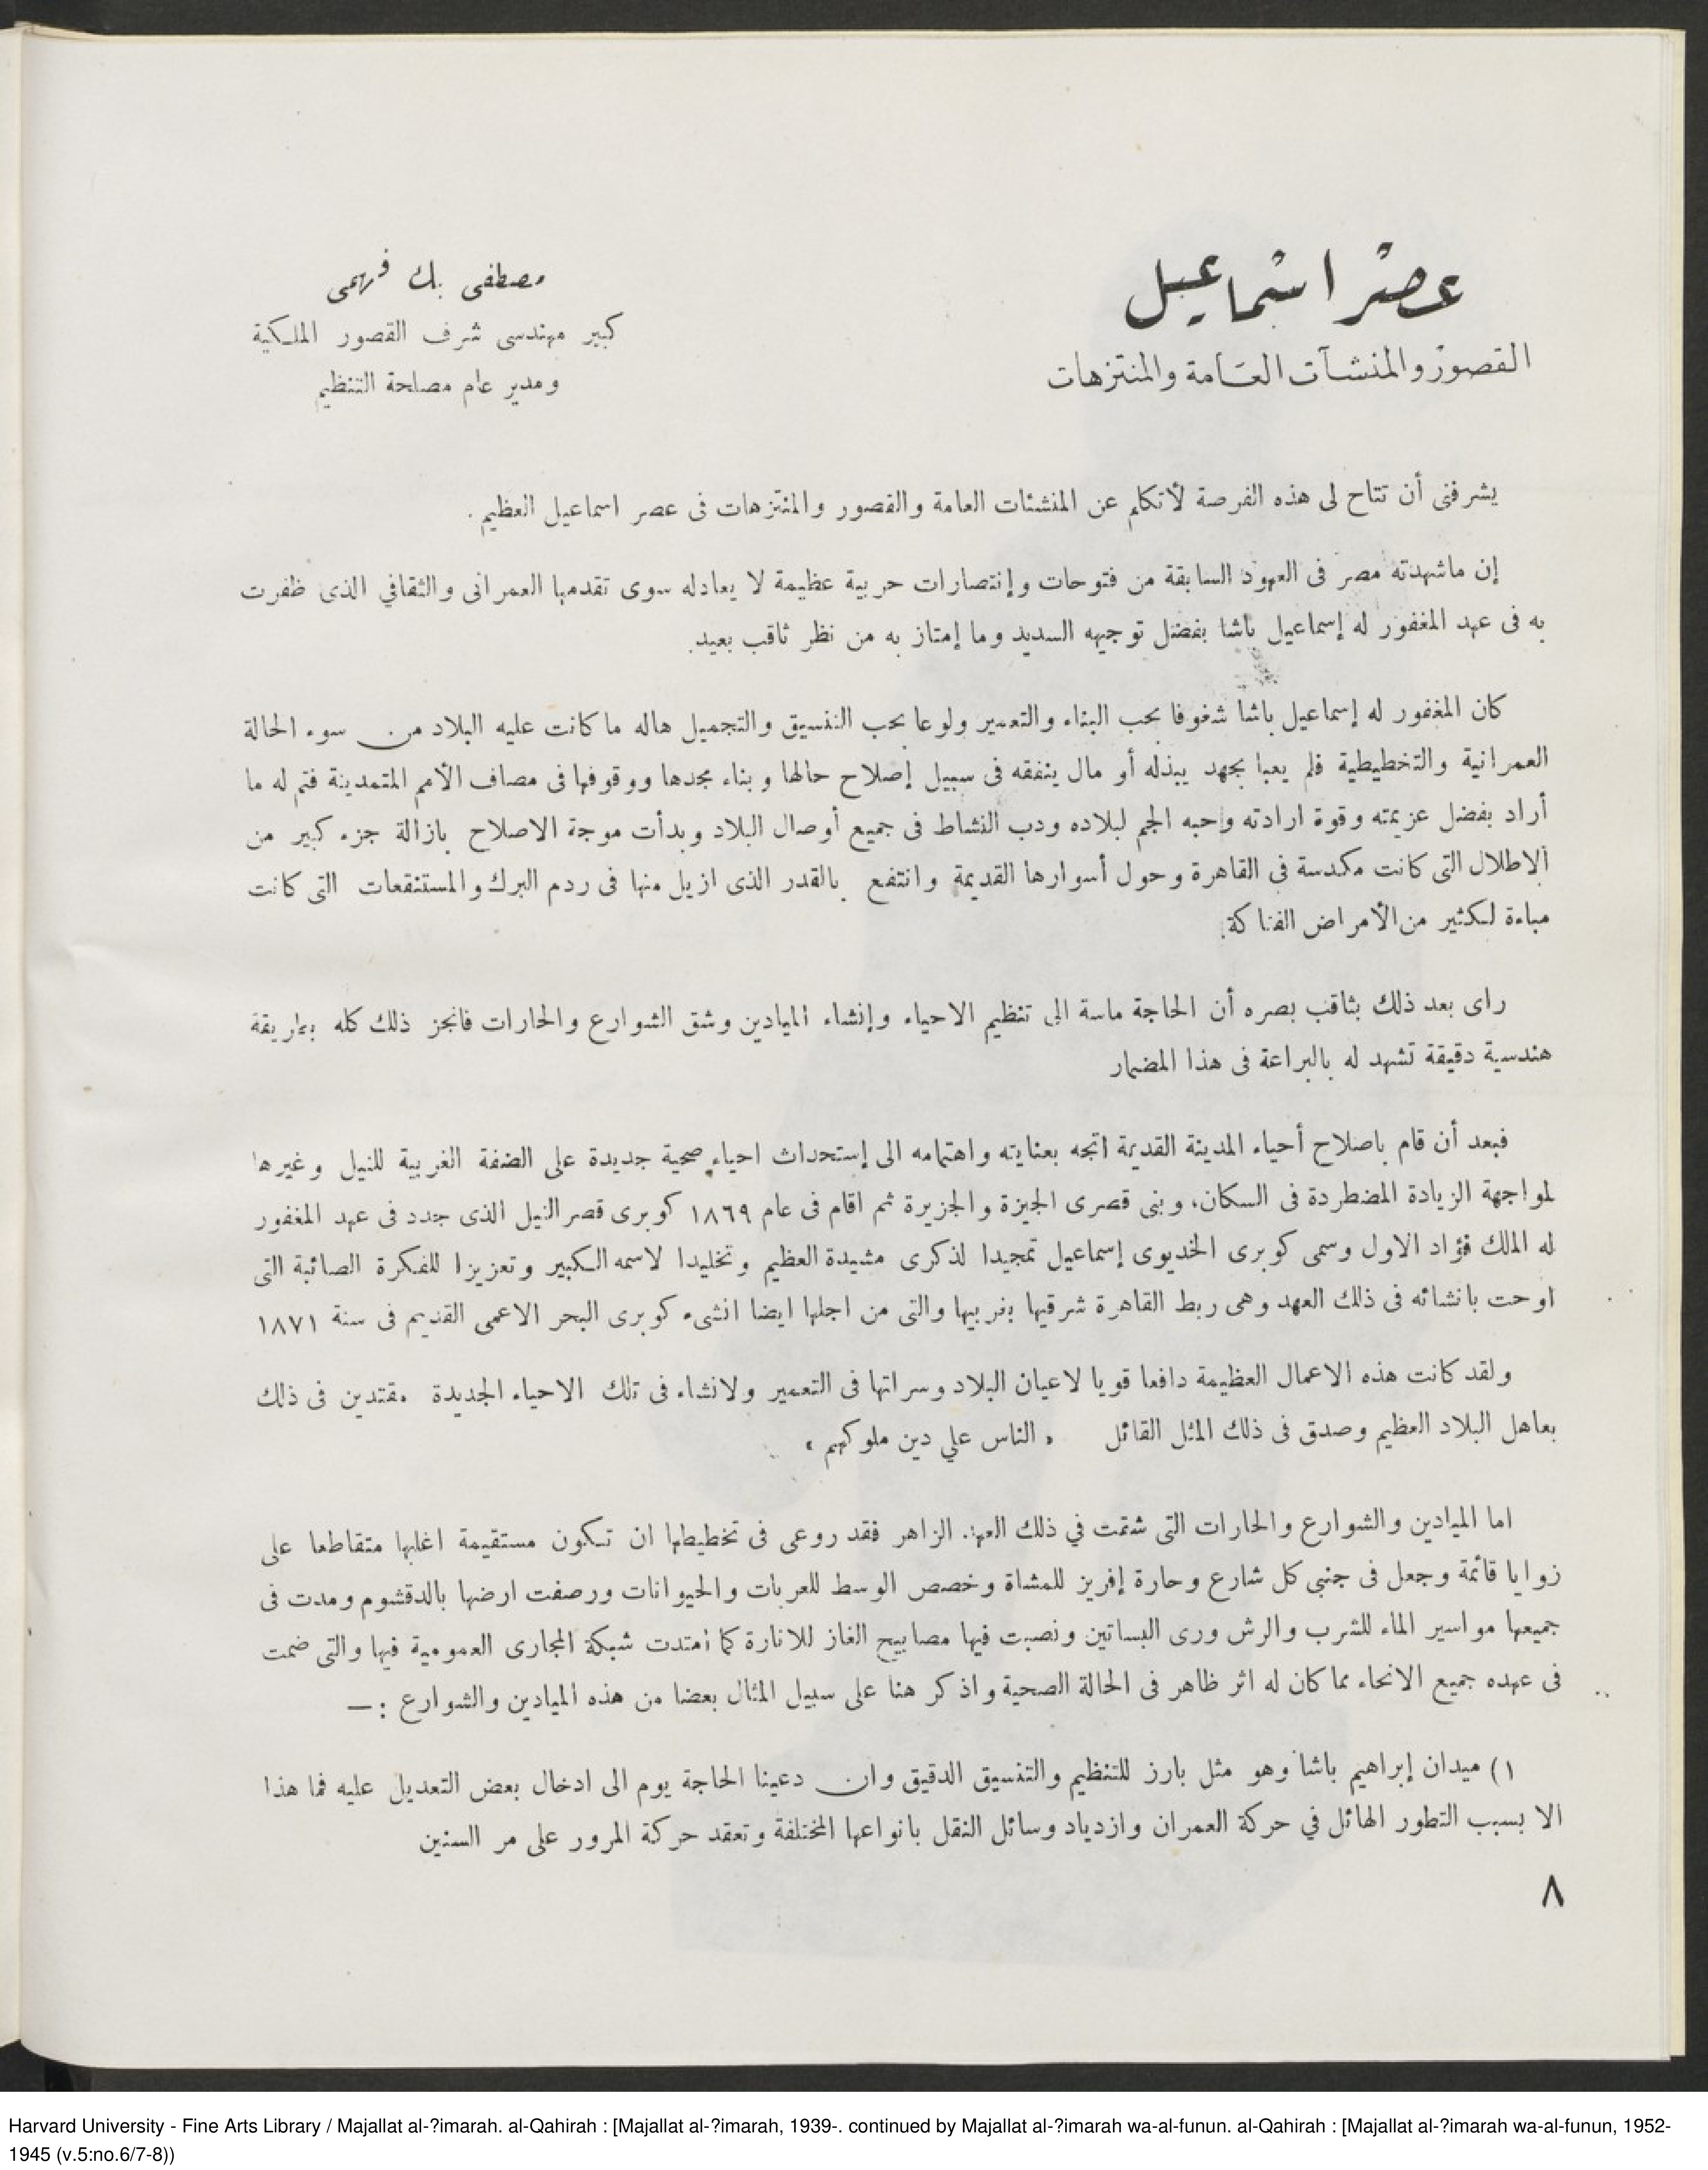 عصر اسماعيل
القصور والمنشآت العامة والمنتزهات
مصطفى بك فهمى
كبير مهندسى شرف القصور الملكية
ومدير عام مصلحة التنظيم
يشرفنى أن تتاح لى هذه الفرصة لأتكلم عن المنشئات العامة والقصور والمنتزهات فى عصر اسماعيل العظيم.
إن ماشهدته مصر فى العهود السابقة من فتوحات وإنتصارات حربية عظيمة لا يعادله سوى تقدمها العمرانى والثقافي الذى ظفرت
به فى عهد المغفور له إسماعيل باشا بفضل توجيهه السديد وما إمتاز به من نظر ثاقب بعيد.
كان المغفور له إسماعيل باشا شغوفا بحب البناء والتعمير ولوعا بحب التنسيق والتجميل هاله ما كانت عليه البلاد من سوء الحالة
العمرانية والتخطيطية فلم يعبا بجهد يبذله أو مال ينفقه فى سبيل إصلاح حالها وبناء مجدها ووقوفها فى مصاف الأمم المتمدينة فتم له ما
أراد بفضل عزيمته وقوة ارادته وحبه الجم لبلاده ودب النشاط فى جميع أوصال البلاد وبدأت موجة الاصلاح بازالة جزء كبير من
الاطلال التى كانت مكدسة فى القاهرة وحول أسوارها القديمة وانتفع بالقدر الذى ازيل منها فى ردم البرك والمستنقعات التى كانت
مباءة لكثير من الأمراض الفتاكة.
راى بعد ذلك بثاقب بصره أن الحاجة ماسة الى تنظيم الاحياء وإنشاء الميادين وشق الشوارع والحارات فانجز ذلك كله بطريقة
هندسية دقيقة تشهد له بالبراعة فى هذا المضمار
فبعد أن قام باصلاح أحياء المدينة القديمة اتجه بعنايته واهتمامه الى إستحداث احياء صحية جديدة على الضفة الغربية للنيل وغيرها
لمواجهة الزيادة المضطردة فى السكان، وبنى قصرى الجيزة والجزيرة ثم اقام فى عام ١٨٦٩ كوبرى قصر النيل الذى جدد فى عهد المغفور
له الملك فؤاد الاول وسمى كوبرى الخديوى إسماعيل تمجيدا لذكرى مشيدة العظيم وتخليدا لاسمه الكبير وتعزيزا للفكرة الصائبة التى
اوحت بانشائه فى ذلك العهد وهى ربط القاهرة شرقيها بغربيها والتى من اجلها ايضا انشىء كوبرى البحر الاعمى القديم فى سنة ١٨٧١
ولقد كانت هذه الاعمال العظيمة دافعا قويا لاعيان البلاد وسراتها فى التعمير ولانشاء فى تلك الاحياء الجديدة مقتدين فى ذلك
بعاهل البلاد العظيم وصدق فى ذلك المثل القائل « الناس علي دين ملوكهم »
اما الميادين والشوارع والحارات التى شقت في ذلك العهد الزاهر فقد روعى فى تخطيطها ان تكون مستقيمة اغلبها متقاطعا على
زوايا قائمة وجعل فى جنبي كل شارع وحارة إفريز للمشاة وخصص الوسط للعربات والحيوانات ورصفت ارضها بالدقشوم ومدت فى
جميعها مواسير الماء للشرب والرش ورى البساتين ونصبت فيها مصابيح الغاز للانارة كما امتدت شبكة المجارى العمومية فيها والتى ضمت
فى عهده جميع الانحاء مما كان له اثر ظاهر فى الحالة الصحية واذكر هنا على سبيل المثال بعضا من هذه الميادين والشوارع : —
١) ميدان إبراهيم باشا وهو مثل بارز للتنظيم والتنسيق الدقيق وان دعينا الحاجة يوم الى ادخال بعض التعديل عليه فما هذا
الا بسبب التطور الهائل في حركة العمران وازدياد وسائل النقل بانواعها المختلفة وتعقد حركة المرور على مر السنين
٨
Harvard University - Fine Arts Library / Majallat al-?imarah. al-Qahirah : [Majallat al-?imarah, 1939-. continued by Majallat al-?imarah wa-al-funun. al-Qahirah : [Majallat al-?imarah wa-al-funun, 1952-
1945 (v.5:no.6/7-8))